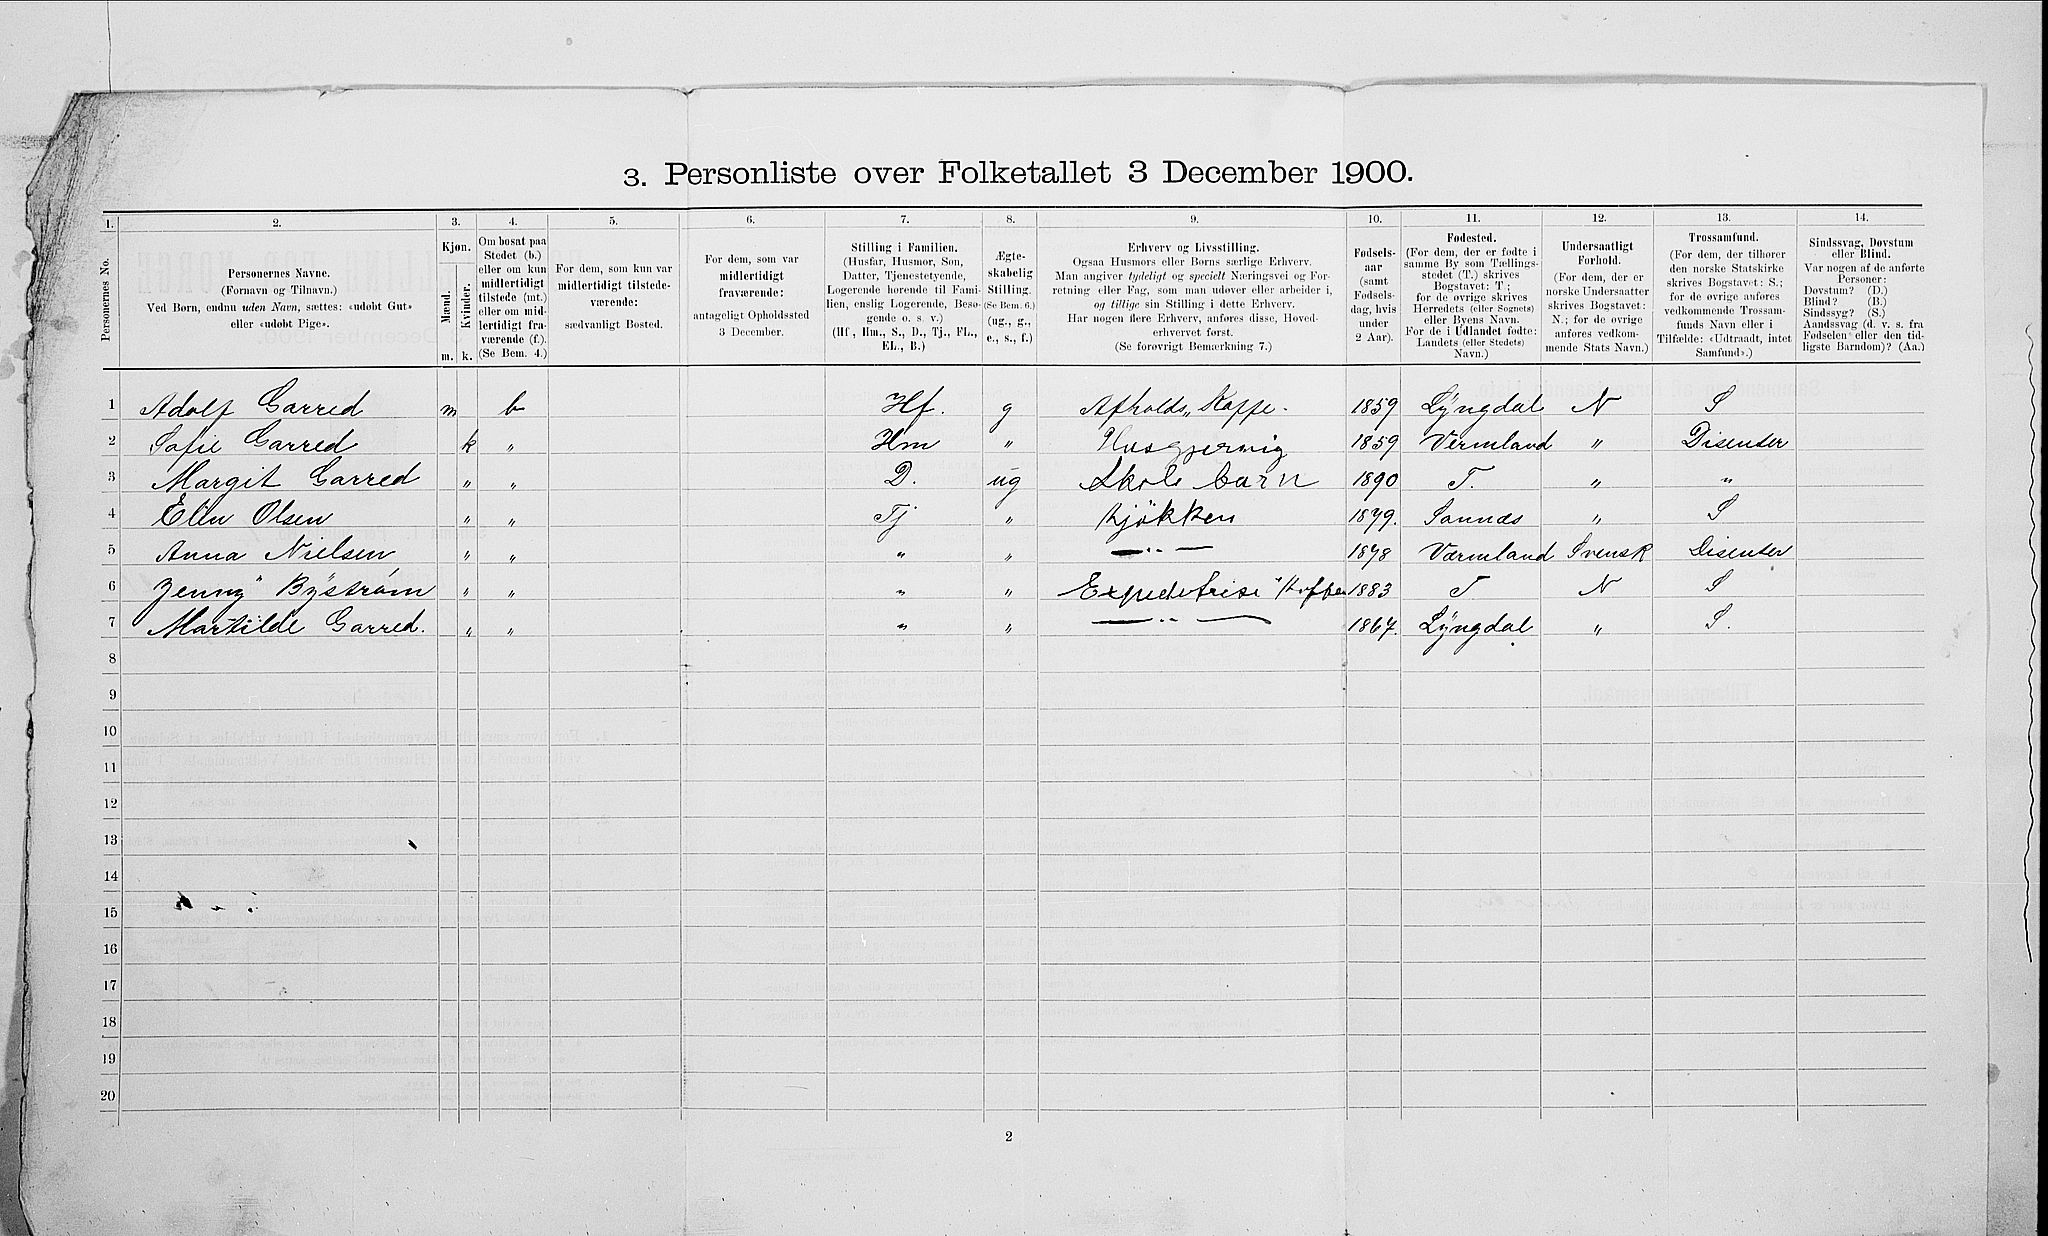 3. Personliste over Folketallet 3 December 1900.
1. 2. 3. 4. 5. 6. 7. 8. 9. 10. 11. 12. 13. 14.
Personernes No.
Personernes Navne.
(Fornavn og Tilnavn.)
Ved Børn, endnu uden Navn, sættes: «udøbt Gut»
eller «udøbt Pige».
Kjøn.
Mænd.
Kvinder.
m. k.
Om bosat paa
Stedet (b.)
eller om kun
midlertidigt
tilstede (mt.)
eller om mid-
lertidigt fra-
værende (f.).
(Se Bem. 4.)
For dem, som kun var
midlertidigt tilstede-
værende:
sædvanligt Bosted.
For dem, som var
midlertidigt
fraværende:
antageligt Opholdssted
3 December.
Stilling i Familien.
(Husfar, Husmor, Søn,
Datter, Tjenestetyende,
Logerende hørende til Fami-
lien, enslig Logerende, Besø-
gende o. s. v.)
(Hf., Hm., S., D., Tj., FL.,
EL., B.)
Ægte-
skabelig
Stilling.
(Se Bem. 6.)
(ug., g.,
e., s., f.)
Erhverv og Livsstilling.
Ogsaa Husmors eller Børns særlige Erhverv.
Man angiver tydeligt og specielt Næringsvei og For-
retning eller Fag, som man udøver eller arbeider i,
og tillige sin Stilling i dette Erhverv.
Har nogen flere Erhverv, anføres disse, Hoved-
erhvervet først.
(Se forøvrigt Bemærkning 7.)
Fødsels-
aar
(samt
Fødsels-
dag, hvis
under
2 Aar).
Fødested.
(For dem, der er fødte i
samme By som Tællings-
stedet (T.) skrives
Bogstavet: T;
for de øvrige skrives
Herredets (eller Sognets)
eller Byens Navn.
For de i Udlandet fødte:
Landets (eller Stedets)
Navn.)
Undersaatligt
Forhold.
(For dem, der er
norske Undersaatter
skrives Bogstavet:
N.; for de øvrige
anføres vedkom-
mende Stats Navn.)
Trossamfund.
(For dem, der tilhører
den norske Statskirke
skrives Bogstavet: S.;
for de øvrige anføres
vedkommende Trossam-
funds Navn eller i
Tilfælde: «Udtraadt, intet
Samfund».)
Sindssvag, Døvstum
eller Blind.
Var nogen af de anførte
Personer:
Døvstum? (D.)
Blind? (B.)
Sindssyg? (S.)
Aandssvag (d. v. s. fra
Fødselen eller den tid-
ligste Barndom)? (Aa.)
1 Adolf Garred m b Hf. g Afholds„ Kaffe. 1859 Lyngdal N S
2 Sofie Garred k „ Hm „ Husgjerning 1859 Vermland „ Disenter
3 Margit Garred „ „ D. ug Skole barn 1890 T. „ „
4 Elin Olsen „ „ Tj „ kjøkken 1879. Sannæs „ S
5 Anna Nielsen „ „ „ „ —„— 1878 Værmland Svensk Disenter
6 Jenny Bystrøm „ „ „ „ Expeditrise 1883 T N S
7 Martilde Garred. „ „ „ „ —„— 1867. Lyngdal „ S.
8
9
10
11
12
13
14
15
16
17
18
19
20
2